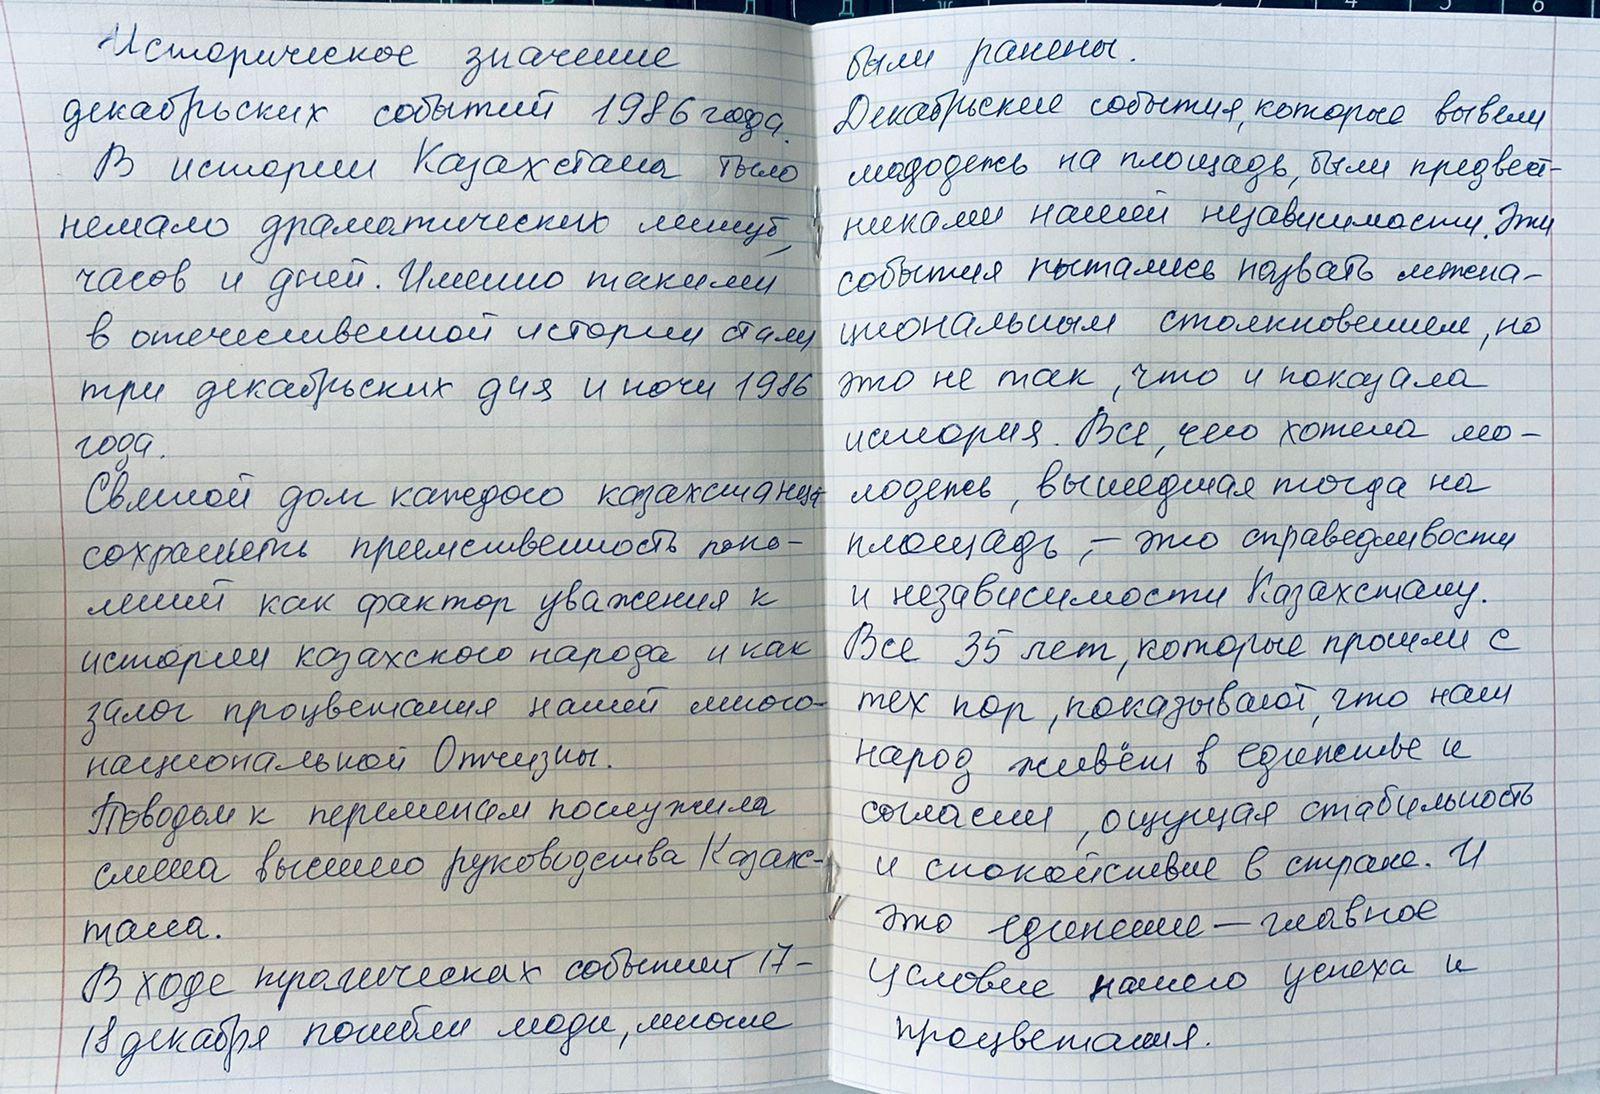 Историческое значение
декабрьских событий 1986 года.
В истории Казахстана было
немало драматических минут,
часов и дней. Именно такими
в отечественной истории стали
три декабрьских дня и ночи 1986
года.
Святой дом каждого казахстанца
сохранить преемственность поко-
лений как фактор уважения к
истории казахского народа и как
залог процветания нашей много-
национальной Отчизны.
Поводом к переменам послужила
смена высшего руководства Казахс-
тана.
В ходе трагических событий 17-
18 декабря погибли люди, многие
были ранены.
Декабрьские события, которые вывели
молодежь на площадь, были предвест-
никами нашей независимости. Эти
события пытались назвать межна-
циональным столкновением, но
это не так, что и показала
история. Все, чего хотела мо-
лодежь, вышедшая тогда на
площадь, – это справедливости
и независимости Казахстану.
Все 35 лет, которые прошли с
тех пор, показывают, что наш
народ живёт в единстве и
согласии, ощущая стабильность
и спокойствие в стране. И
это единение – главное
условие нашего успеха и
процветания.